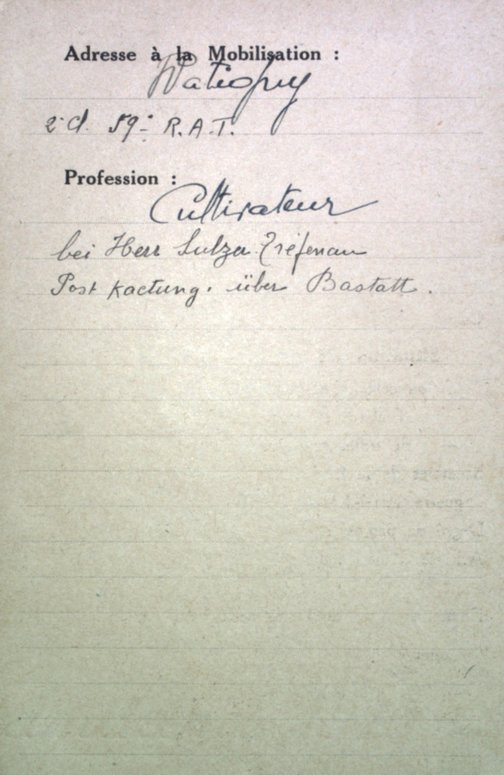 Adresse à la Mobilisation :
Watigny
2.d. 59e R.A.T.
Profession :
Cultivateur
bei Herr Sulza Tréfenau
Post Kactung. über Bastatt.